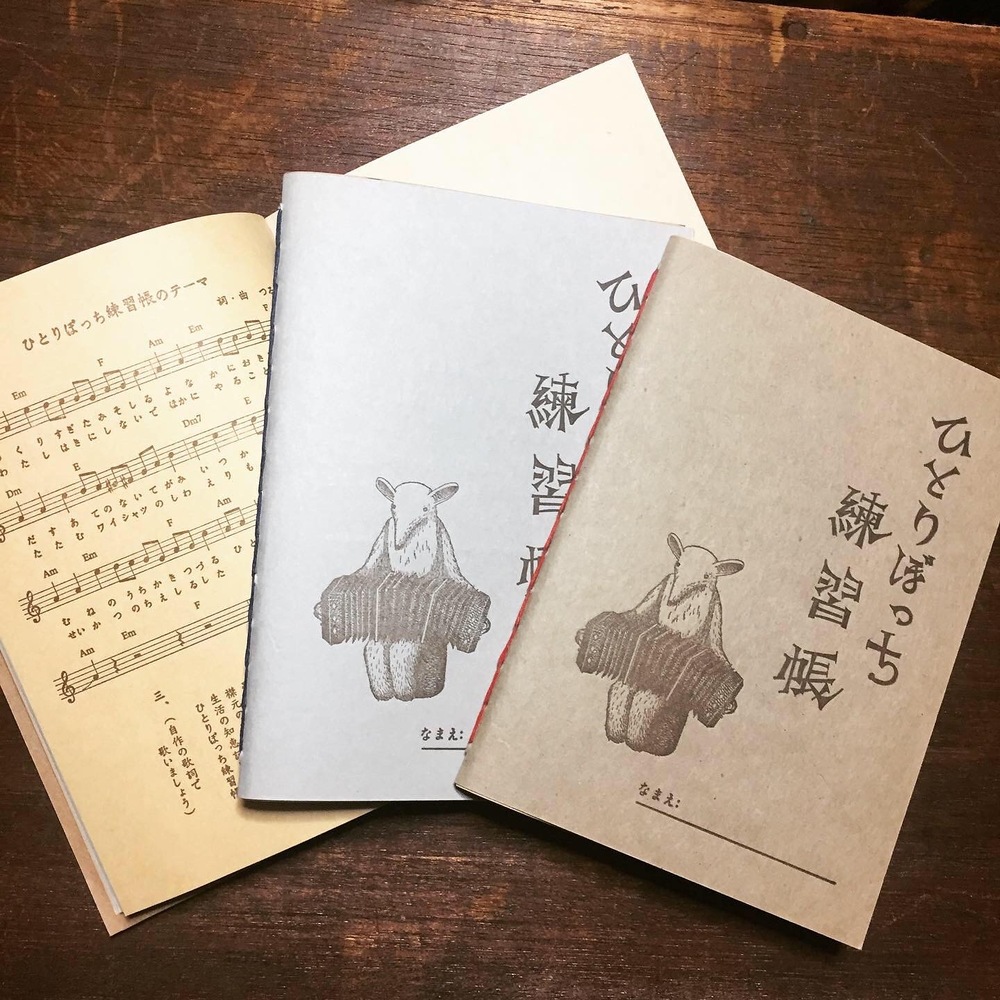 ひとりぼっち練習帳のテーマ
詞・曲 つる
Em F Am Em F
くりすぎたみそしるよなかにおき
わたしはきにしないでほかにやること
Dm E Dm7 E
だすあてのないてがみいつか
たたむワイシャツのしわえりも
Am Em F Am
むねのうちかきつづるひと
せいかつのちえしるした
Am Em F
襟元の
生活の知恵記
ひとりぼっち練習帖
三、（自作の歌詞で
歌いましょう）
ひと
練習
なまえ:
ひとりぼっち
練習帳
なまえ: